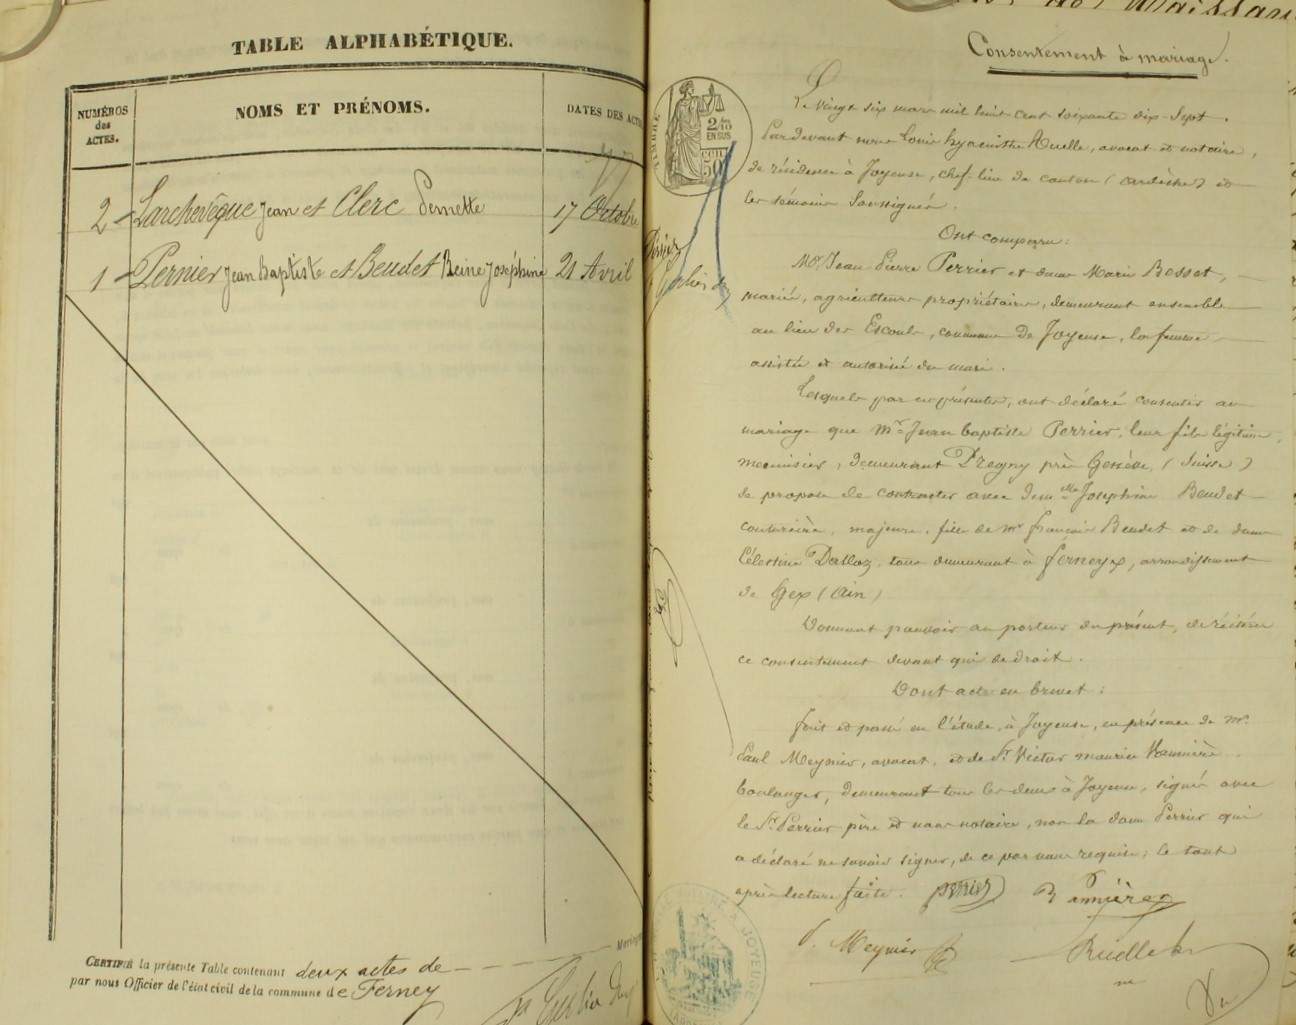 TABLE ALPHABÉTIQUE.
NUMÉROS des ACTES.
NOMS ET PRÉNOMS.
DATES DES ACTES
2 Larchevêque Jean et Clerc Pernette 17 Octobre
1 Pernier Jean Baptiste et Beudet Reine Joséphine 21 Avril
CERTIFIÉ la présente Table contenant deux actes de
par nous Officier de l'état civil de la commune de Ferney
Consentement à mariage.
TIMBRE
2/10
EN SUS
50
Le vingt six mars mil huit cent soixante dix-sept.
Par devant nous Louis hyacinthe Ruelle, avocat et notaire,
de résidence à Joyeuse, chef-lieu de canton (ardèche) et
les témoins soussignés.
Ont comparu:
Mr Jean Pierre Perrier et dame Marie Besset,
mariés, agriculteurs propriétaires, demeurant ensemble
au lieu des Escouls, commune de Joyeuse, la femme
assistée et autorisée du mari.
Lesquels par ces présentes, ont déclaré consentir au
mariage que Mr Jean baptiste Perrier, leur fils légitime,
menuisier, demeurant Pregny près Genève, (Suisse)
se propose de contracter avec demlle Joséphine Beudet
couturière, majeure, fille de mr françois Beudet et de dame
Célestine Dalloz, tous demeurant à ferney, arrondissement
de Gex (Ain)
Donnant pouvoir au porteur du présent, de réitérer
ce consentement devant qui de droit.
Dont acte en brevet:
fait et passé en l'étude, à Joyeuse, en présence de mr
Paul Meynier, avocat, et de Sr Victor maurice Vannière
boulanger, demeurant tous les deux à Joyeuse, signés avec
le Sr Perrier père et nous notaire, non la dame Perrier qui
a déclaré ne savoir signer, de ce par nous requise; le tout
après lecture faite. perrier Vannière
P. Meynier Ruelle